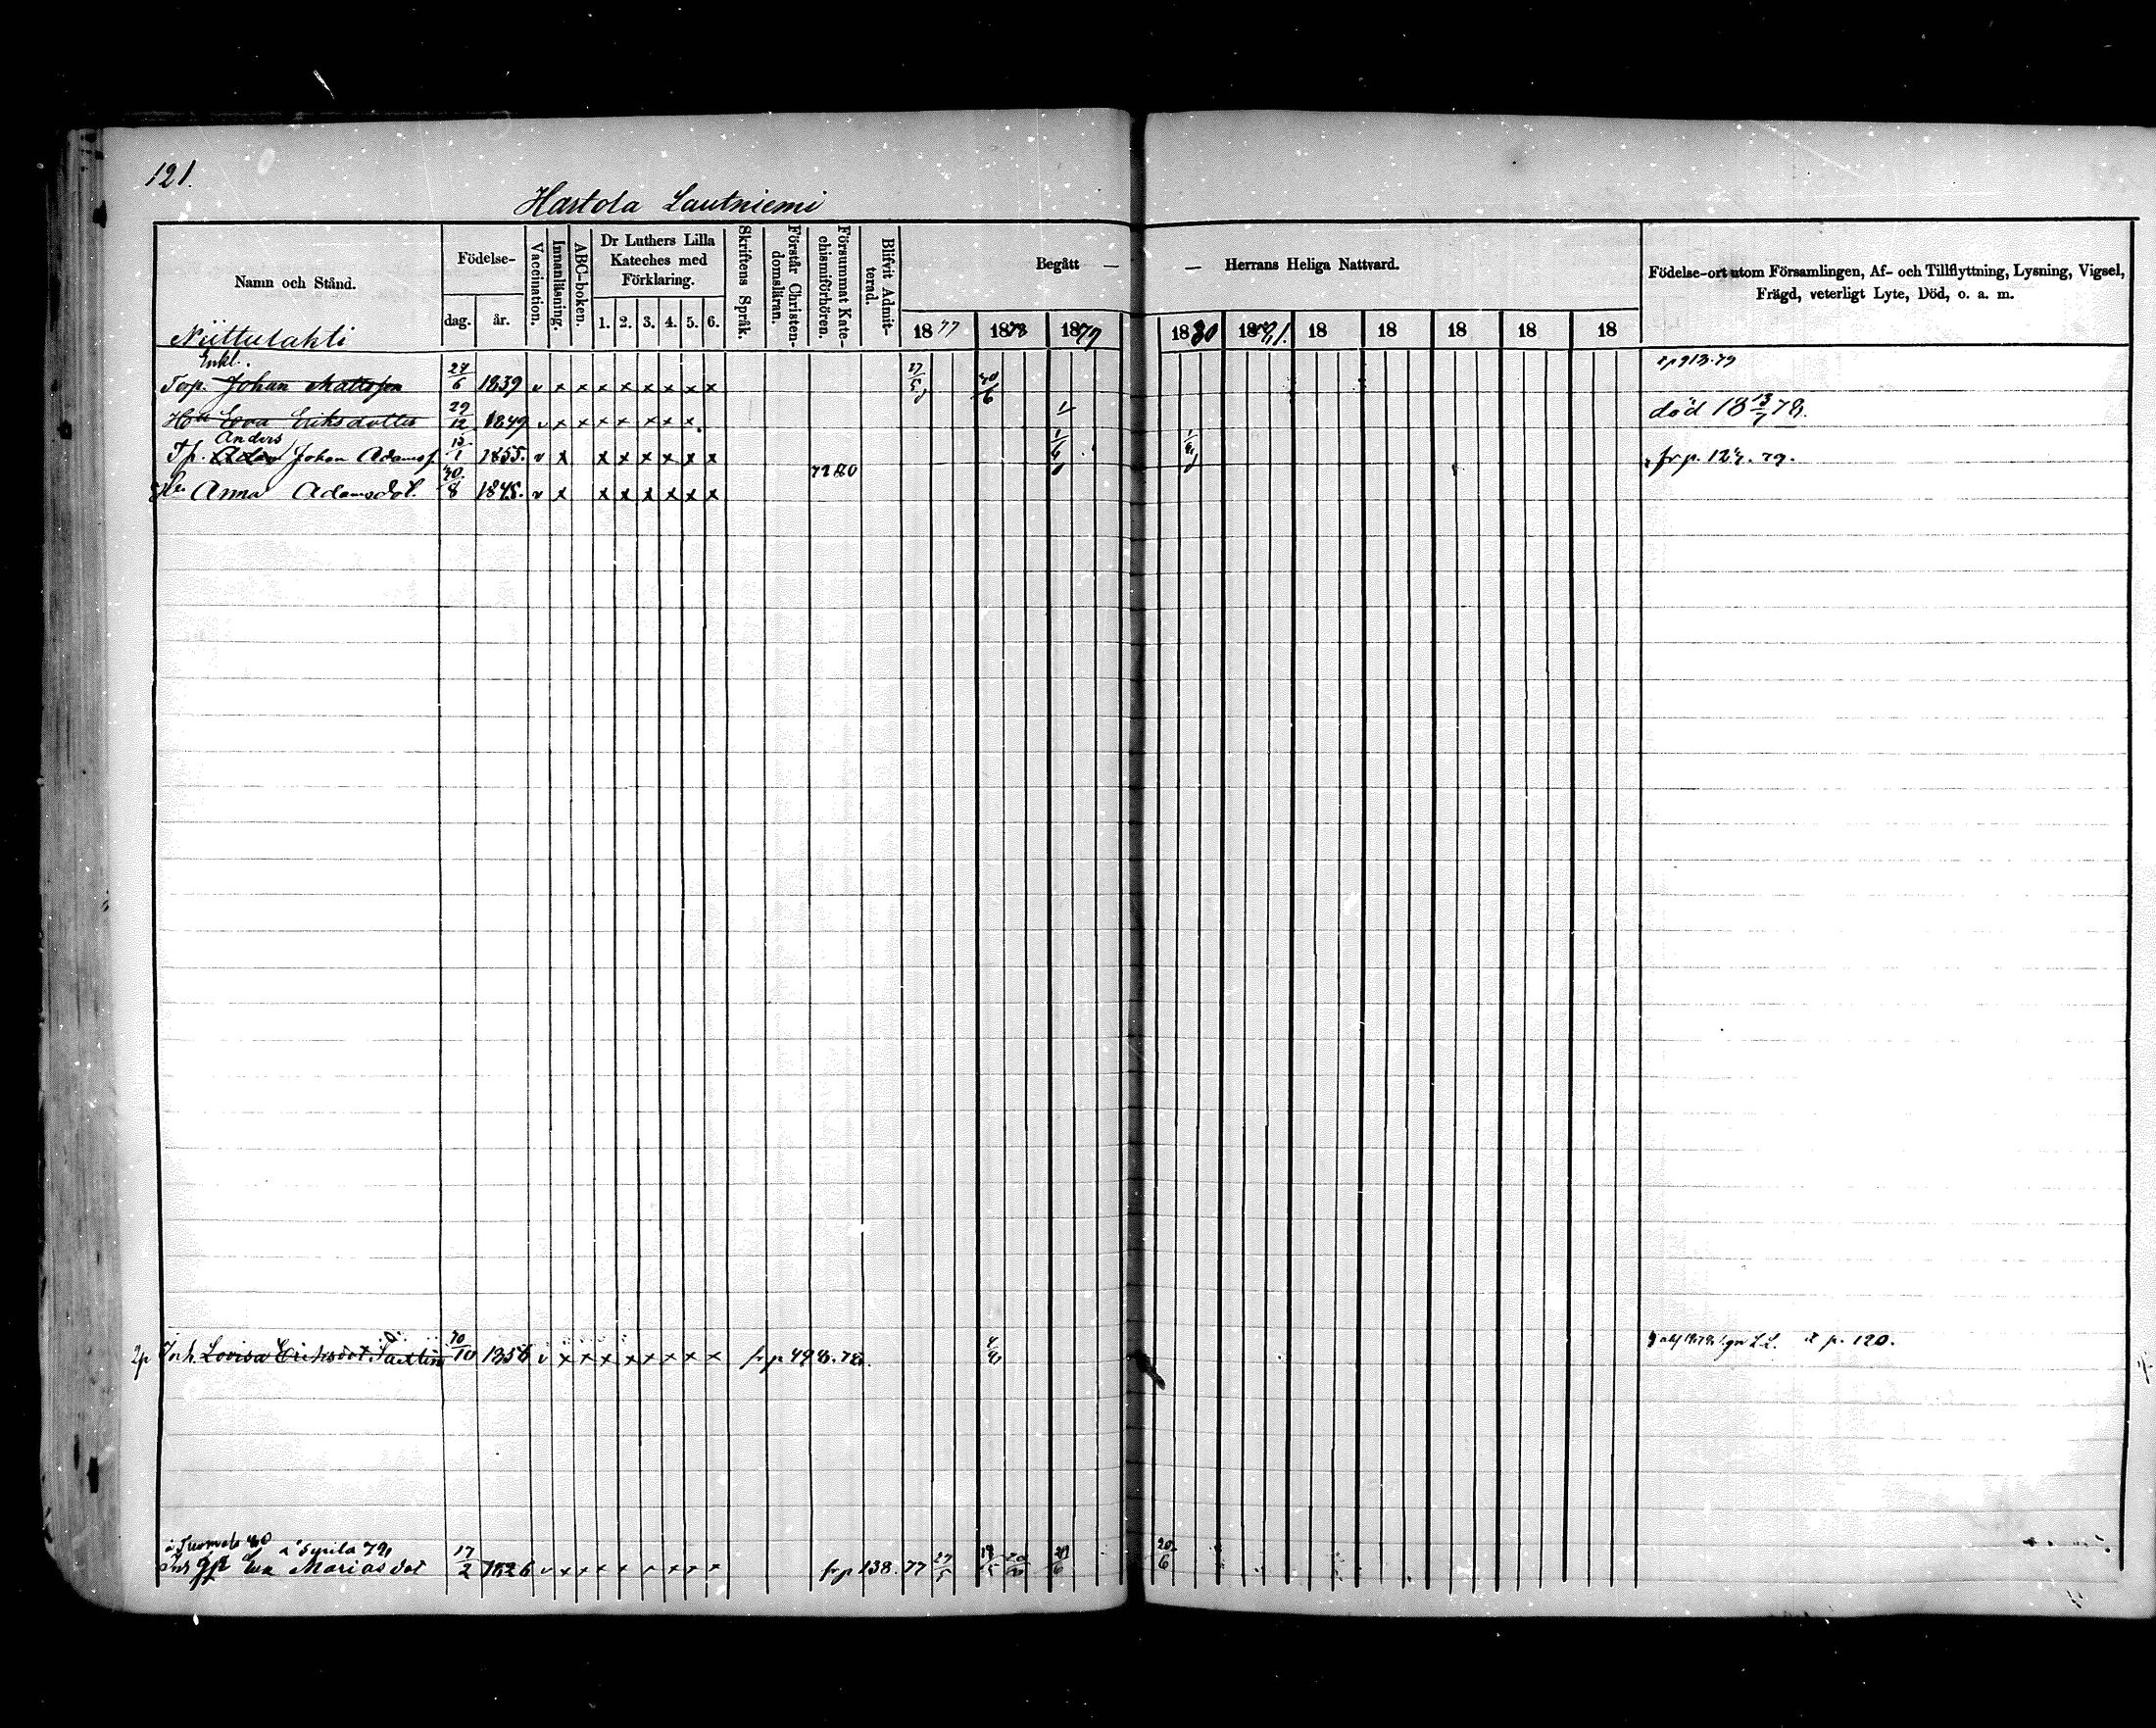 121.
Hartola Lautniemi
Namn och Stånd.
Födelse-
dag.
år.
Vaccination.
Innanläsning.
ABC-boken.
Dr Luthers Lilla
Kateches med
Förklaring.
1. 2. 3. 4. 5. 6.
Skriftens Språk.
Förstår Christen-
domsläran.
Försummat Kate-
chismiförhören.
Blifvit Admit-
terad.
Begått —
— Herrans Heliga Nattvard.
1877 1878 1879 1880 1881. 18 18 18 18 18
Födelse-ort utom Församlingen, Af- och Tillflyttning, Lysning, Vigsel,
Frägd, veterligt Lyte, Död, o. a. m.
Niittulahti
Enkl.
Torp. Johan Mattsson 27/6 1839 v x x x x x x x x 27/5 30/6
Hu Eva Eriksdotter 29/12 1849 v x x x x x x x död 18 13/7 78.
Anders
Tp. Adam Johan Adamsp. 15/1 1855. v x x x x x x x fr p. 79.
Hu Anna Adamsdot. 30/8 1845. v x x x x x x x
2p Inh. Lovisa Eriksdot. 1856 v x x x x x x x x fr p 498. 78. p. 120.
79
Inh Eva Mariasdot 17/2 1826 v x x x x x x x fr p 138. 77 27/5 20/6